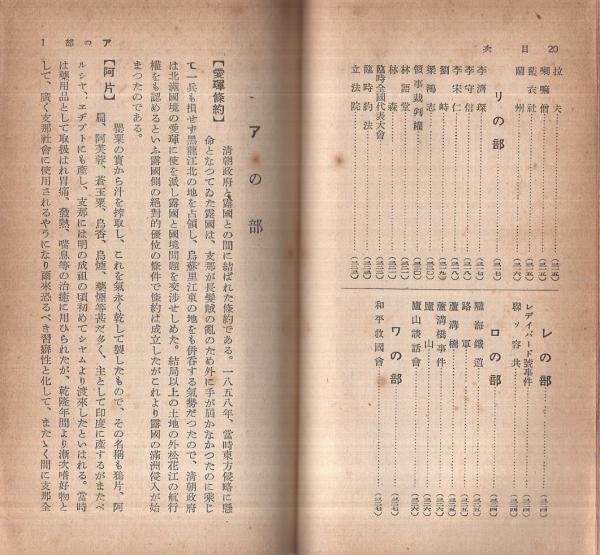 20 目次
拉夫
喇嘛僧
藍衣社
蘭州
リの部
李濟琛
李守信
李宗仁
劉峙
梁鴻志
領事裁判權
林語堂
林森
臨時全國代表大會
臨時約法
立法院
レの部
レディバード號事件
聯ソ容共
ロの部
隴海鐵道
路軍
蘆溝橋
蘆溝橋事件
廬山
廬山談話會
ワの部
和平救國會
アの部 1
アの部
【愛琿條約】 清朝政府と露國との間に結ばれた條約である。一八五八年、當時東方侵略に懸
命となつてゐた露國は、支那が長髮賊の亂のため外に手が屆かなかつたのに乘じ
て一兵も損せず黑龍江北の地を占領し、烏蘇里江東の地をも併呑する氣勢だつたので、清朝政府
は北滿國境の愛琿に使を派し露國と國境問題を交涉せしめた。結局以上の土地の外松花江の航行
權をも認めるといふ露國側の絕對的優位の條件で條約は成立したがこれより露國の滿洲侵入が始
まつたのである。
【阿片】 罌栗の實から汁を搾取し、これを氣永く乾して製したもので、その名稱も鴉片、阿
扁、阿芙蓉、蒼玉粟、烏香、烏煙、藥煙等甚だ多く、主として印度に產するがまたペ
ルシヤ、エヂプトにも產し、支那には明の成祖の頃初めてシヤムより渡來したといはれる。當時
は藥用品として取扱はれ胃痛、發熱、喘息等の治癒に用ひられたが、乾隆年間より漸次嗜好物と
して、廣く支那社會に使用されるやうになり爾來恐るべき習癖性と化して、またゝく間に支那全